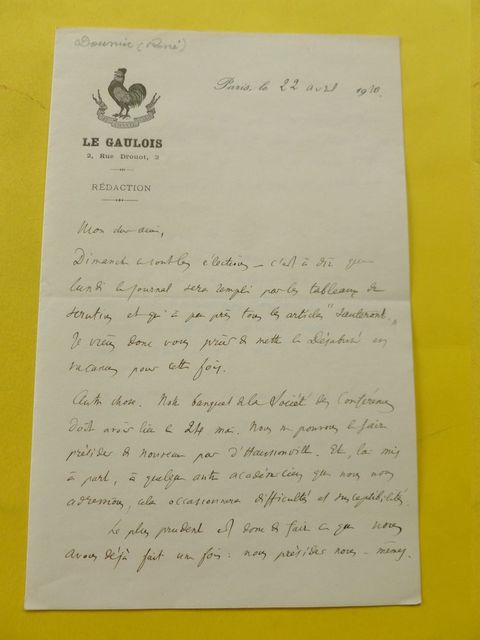 Doumic (René)
Paris, le 22 avril 1910.
LE GAULOIS
2, Rue Drouot, 2
RÉDACTION
Mon cher ami,
Dimanche ce sont les élections – c'est à dire que
lundi le journal sera rempli par les tableaux de
scrutin et qu'à peu près tous les articles "sauteront".
Je viens donc vous prier de mettre le Désabusé en
vacances pour cette fois.
Autre chose. Notre banquet de la Société des Conférences
doit avoir lieu le 24 mai. Nous ne pouvons le faire
présider de nouveau par d'Haussonville. Et, lui mis
à part, à quelque autre académicien que nous nous
adressions, cela occasionnera difficultés et susceptibilités.
Le plus prudent est donc de faire ce que nous
avons déjà fait une fois : nous présider nous-mêmes.